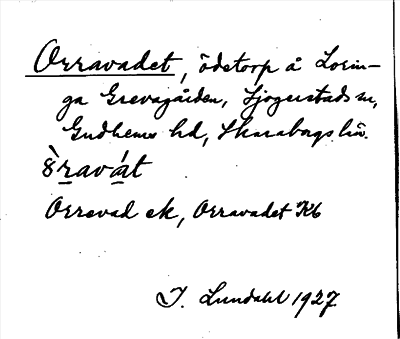 Orravadet, ödetorp å Lovin-
ga Grevagården, Sjogerstads sn,
Gudhems hd, Skarabogs län.
òravát
Orrevad ek, Orravadet Kb
I. Lundahl 1927